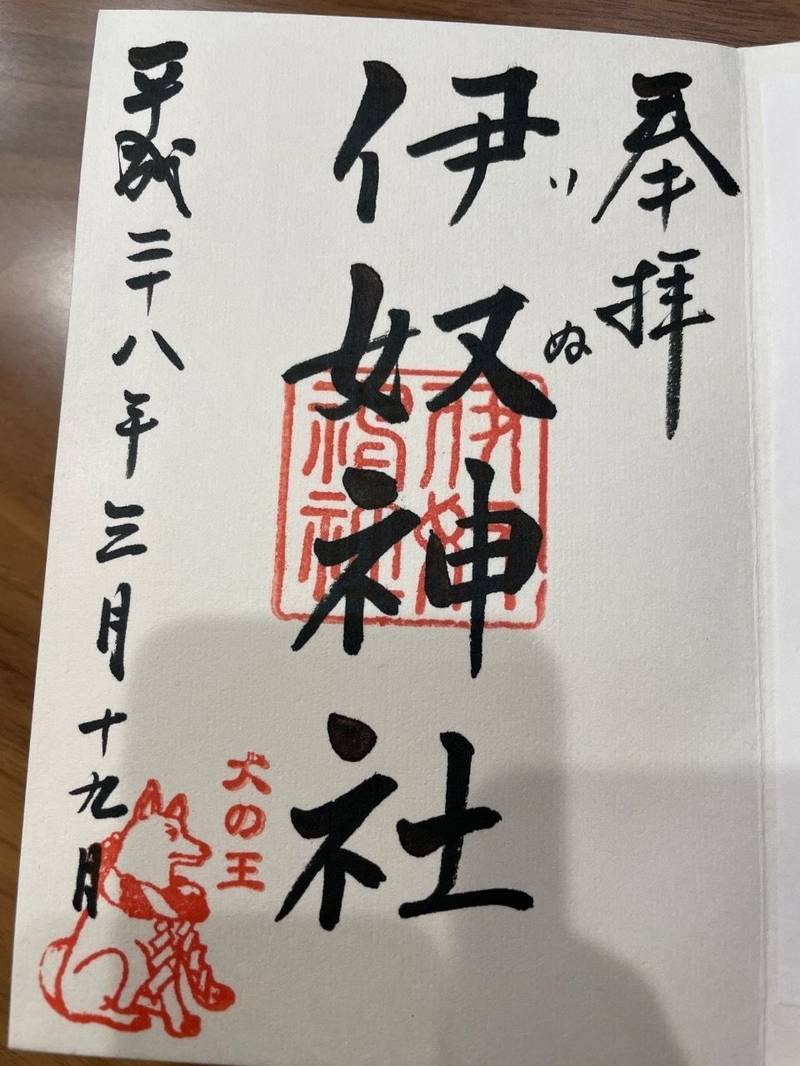 奉拝
いぬ
伊奴神社
伊奴
神社
犬の王
平成二十八年三月十九日